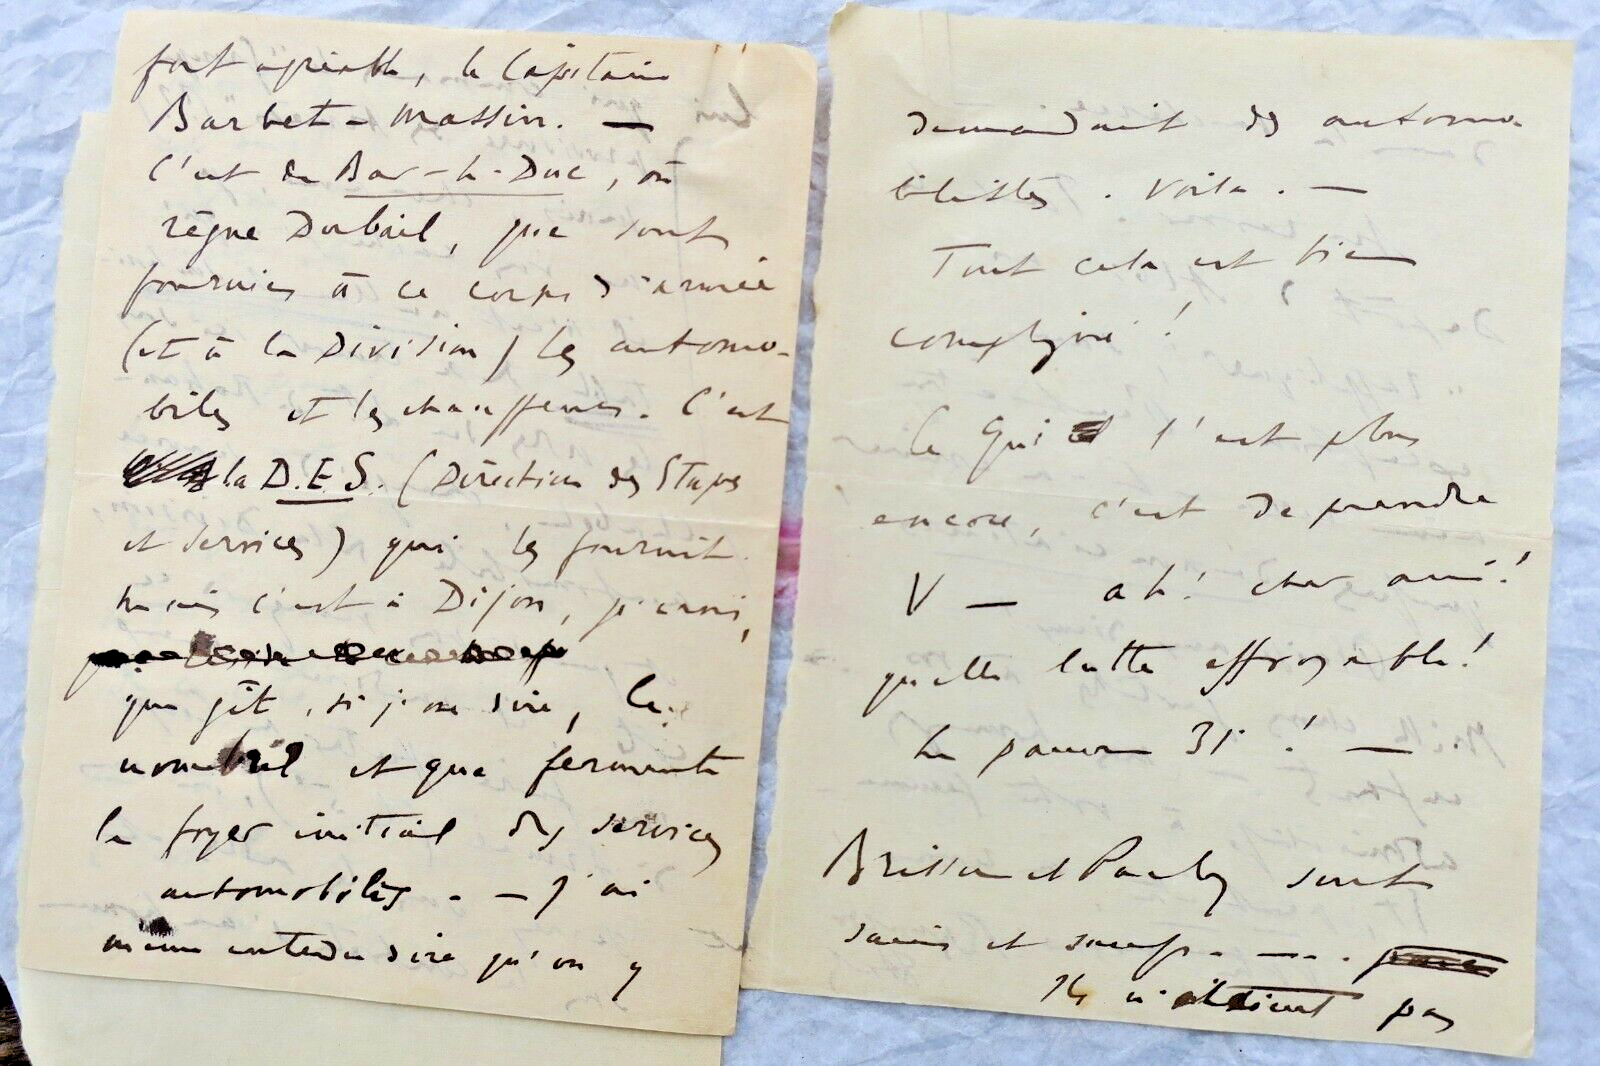 fort agréable, le Capitaine
Barbet-Massin. —
C'est de Bar-le-Duc, où
règne Dubail, que sont
fournies à ce corps d'armée
(et à la Division) les automo-
biles et les chauffeurs. C'est
la D.E.S. (Direction des Etapes
et Services) qui les fournit.
mais c'est à Dijon, je crois,
que gît, si j'ose dire, le
nombril et que fermente
le foyer initial des services
automobiles. — J'ai
même entendu dire qu'on y
demandait des automo-
bilistes. Voila. —
Tout cela est bien
compliqué !
Ce qui l'est plus
encore, c'est de prendre
V — ah! cher ami!
quelle lutte effroyable!
Le pauvre 31e ! —
Brisson et Pauly sont
sains et saufs. — . .
Ils n'étaient pas